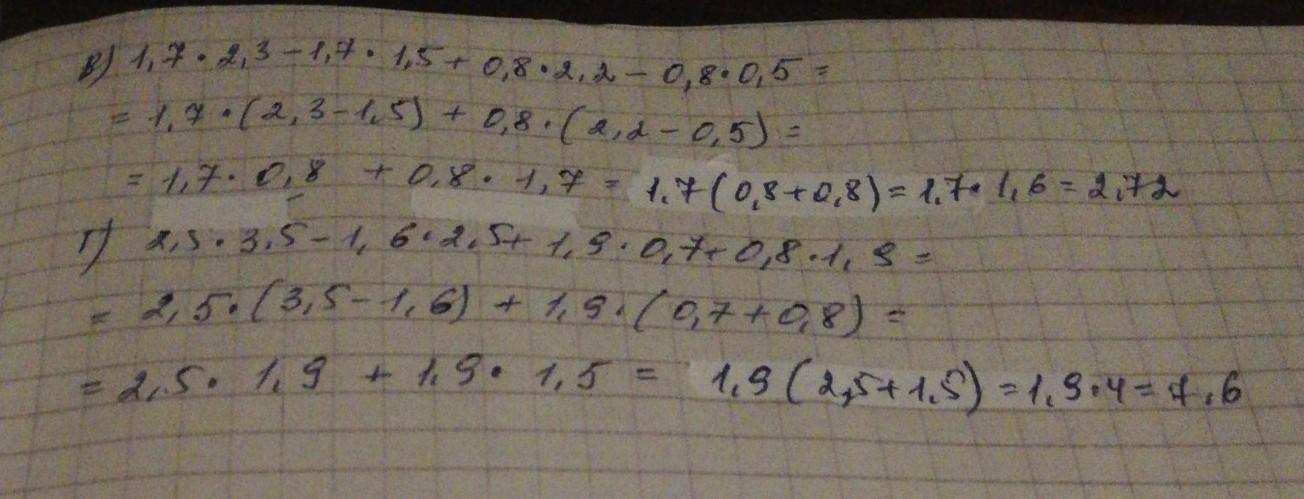 в) 1,7·2,3-1,7·1,5+0,8·2,2-0,8·0,5=
=1,7·(2,3-1,5)+0,8·(2,2-0,5)=
=1,7·0,8+0,8·1,7=1,7(0,8+0,8)=1,7·1,6=2,72
г) 2,5·3,5-1,6·2,5+1,9·0,7+0,8·1,9=
=2,5·(3,5-1,6)+1,9·(0,7+0,8)=
=2,5·1,9+1,9·1,5=1,9(2,5+1,5)=1,9·4=7,6